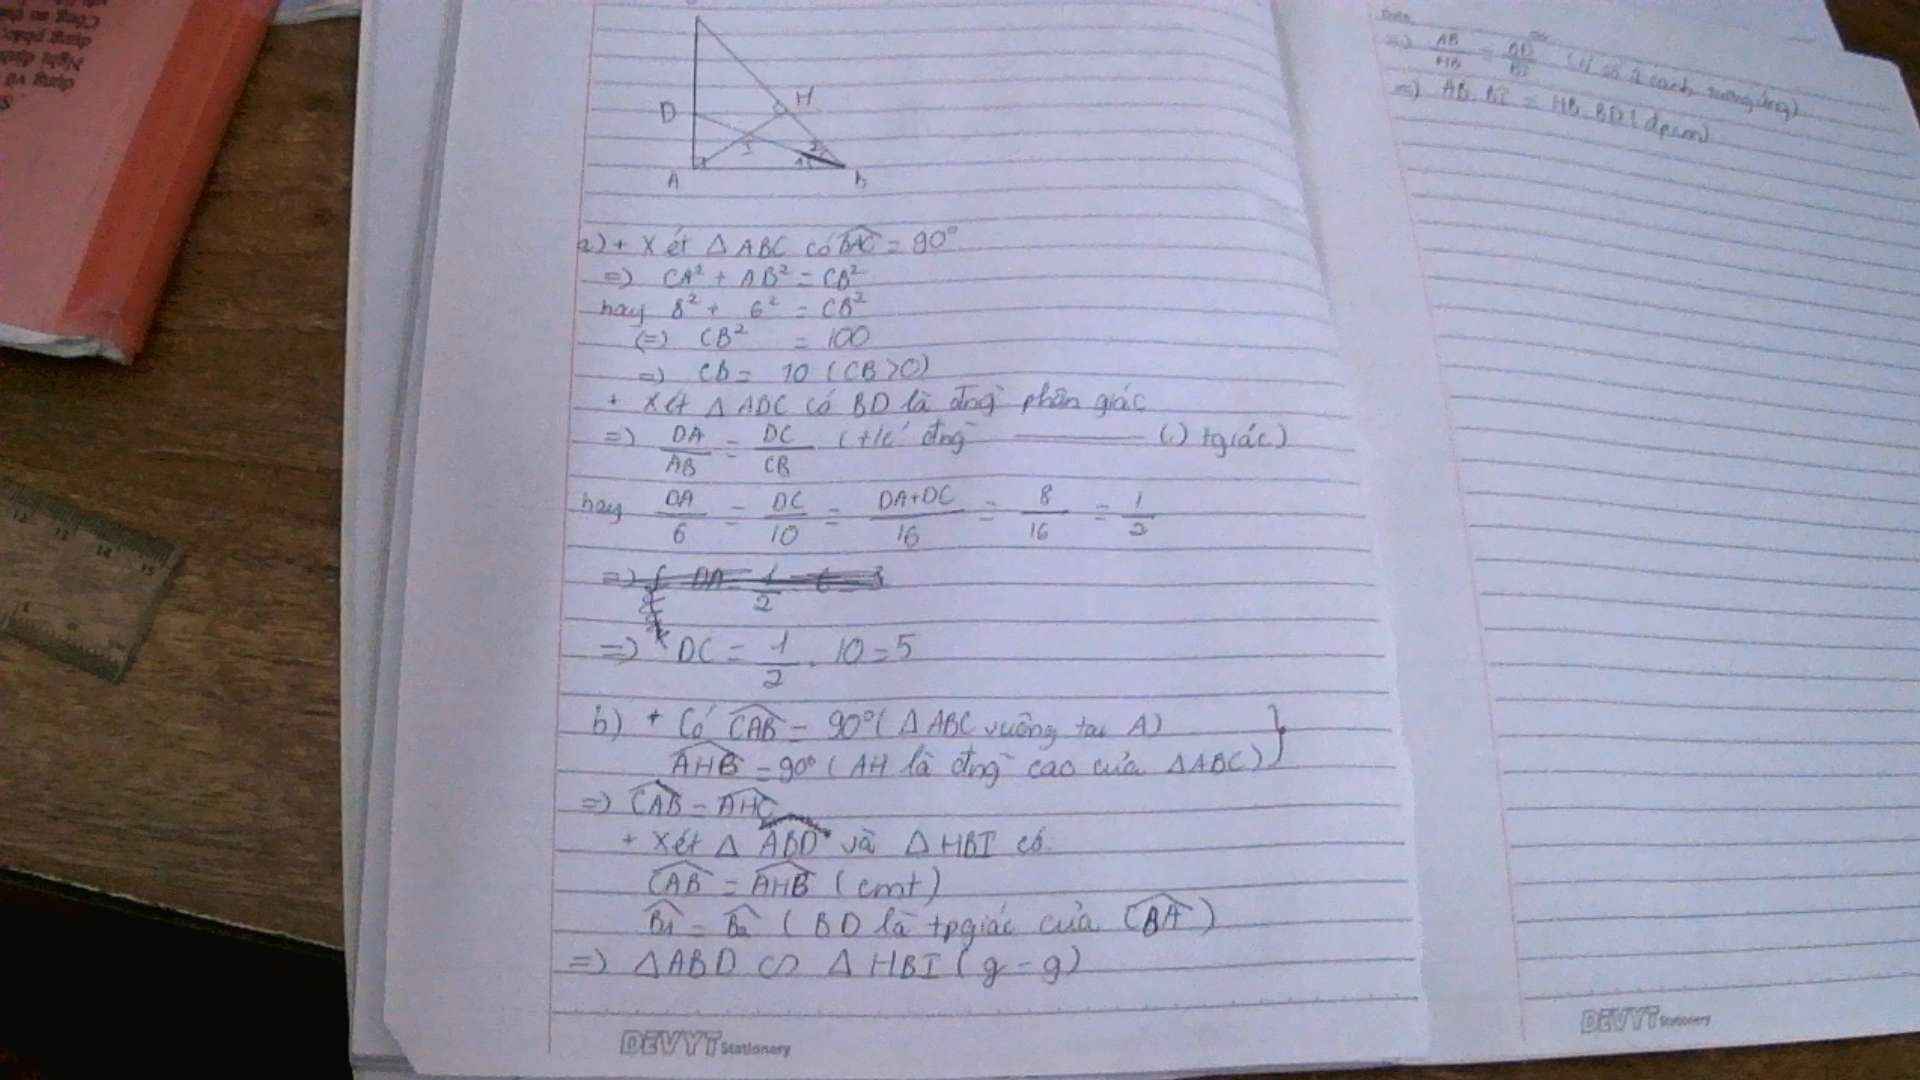 D
H
I
2
1
A
B
a) + Xét Δ ABC có BAC = 90°
=) CA² + AB² = CB²
hay 8² + 6² = CB²
(=) CB² = 100
=) CB = 10 (CB>0)
+ Xét Δ ADC có BD là đng phân giác
=) DA/AB = DC/CB (t/c đng ——— (.) tgiác)
hay DA/6 = DC/10 = DA+DC/16 = 8/16 = 1/2
=) DC = 1/2 . 10 = 5
b) + Có CAB = 90° (Δ ABC vuông tại A)
AHB = 90° (AH là đng cao của ΔABC)
=) CAB = AHC
+ Xét Δ ABD và Δ HBI có
CAB = AHB (cmt)
B1 = B2 (BD là tpgiác của CBA)
=) ΔABD ∽ Δ HBI (g-g)
DEVYT Stationery
=) AB/HB = BD/BI (tỉ số 2 cạnh tương ứng)
=) AB. BI = HB. BD (đpcm)
DEVYT Stationery